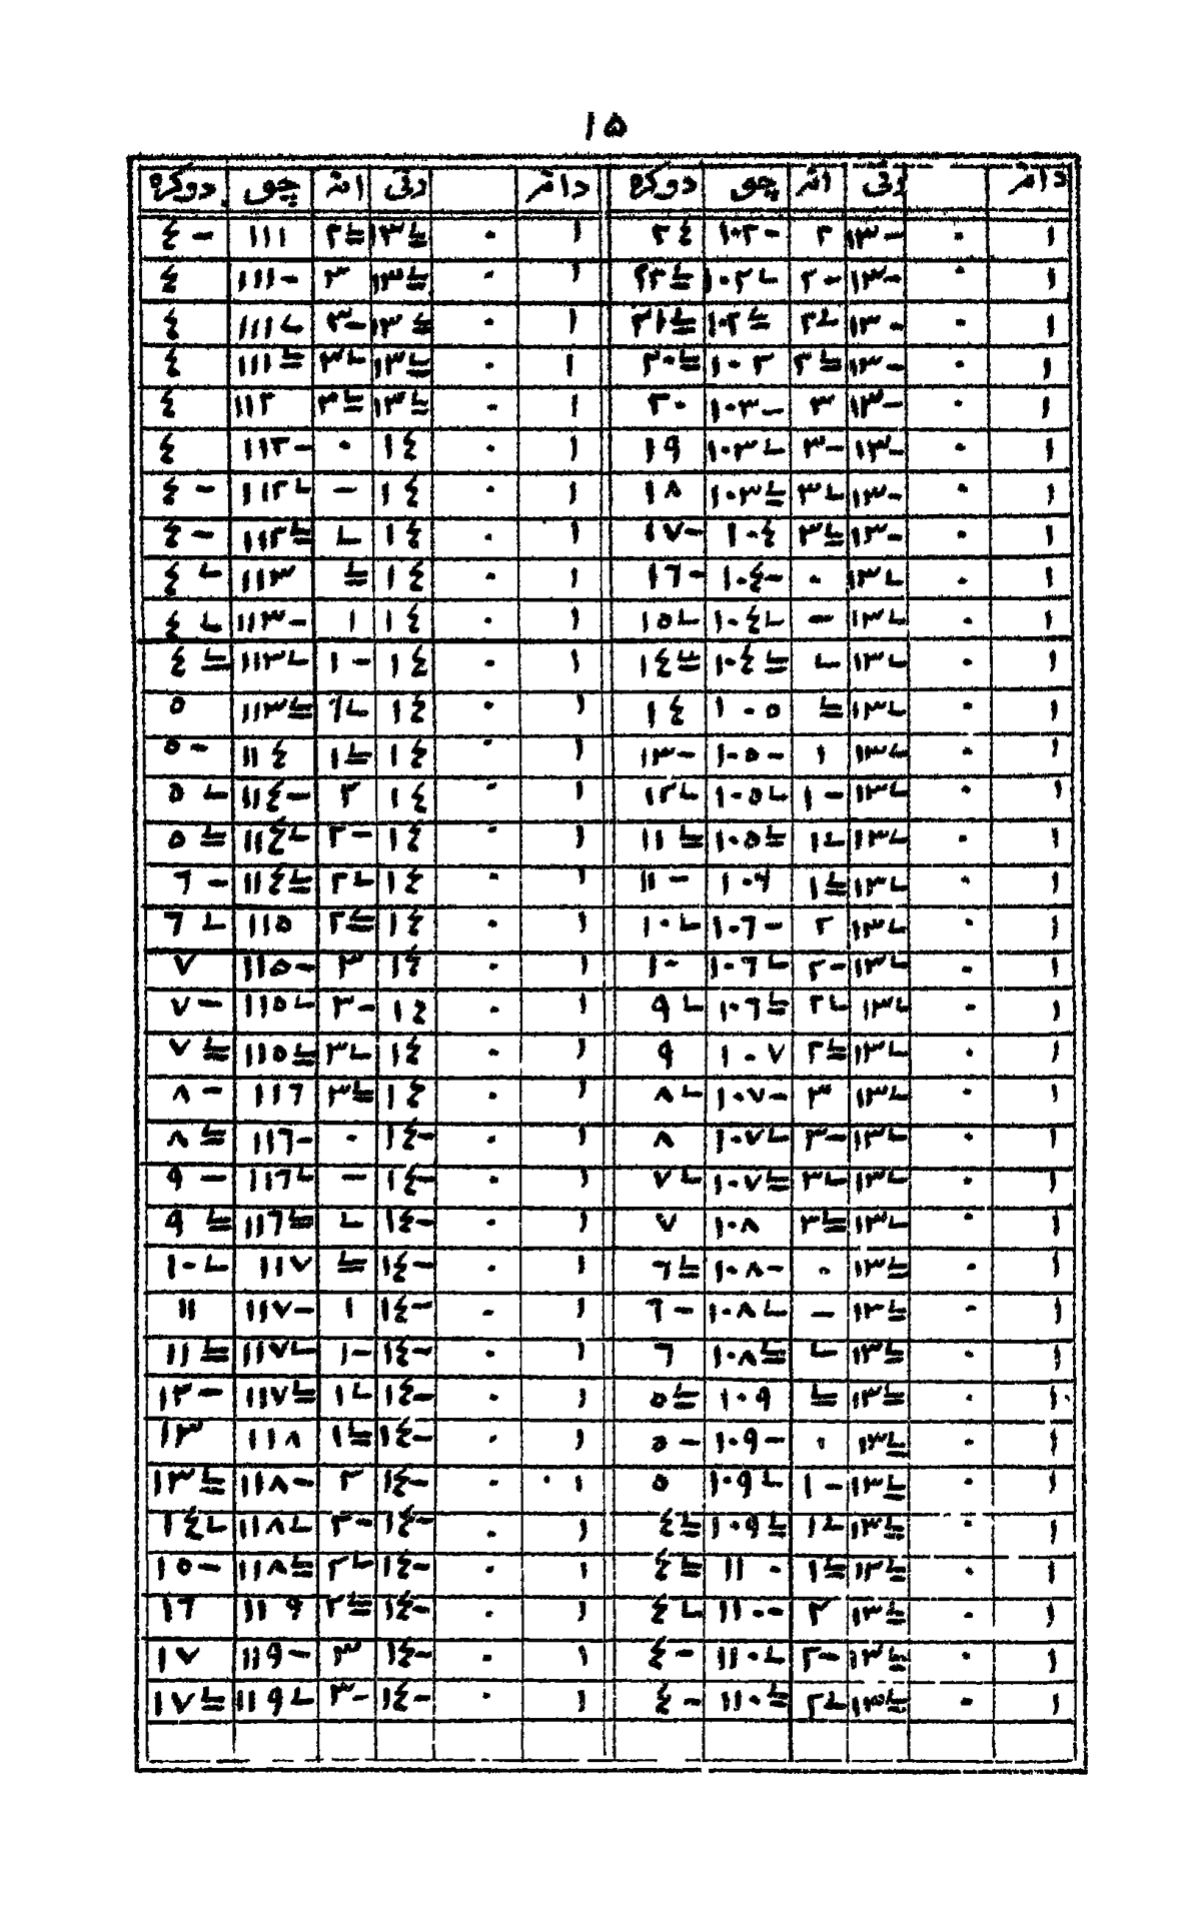 ١٥
دانہ رتی انہ چو دوکڑہ دانہ رتی انہ چو دوکڑہ
١ ٠ ١٣- ٢ ١٠٢- ٢٤ ١ ٠ ١٣L= ٢L= ١١١ ٤-
١ ٠ ١٣- ٢- ١٠٢L ٢٢L= ١ ٠ ١٣L= ٣ ١١١- ٤
١ ٠ ١٣- ٢L ١٠٢L= ٢١L= ١ ٠ ١٣L= ٣- ١١١L ٤
١ ٠ ١٣- ٢L= ١٠٣ ٢٠L= ١ ٠ ١٣L= ٣L ١١١L= ٤
١ ٠ ١٣- ٣ ١٠٣- ٢٠ ١ ٠ ١٣L= ٣L= ١١٢ ٤
١ ٠ ١٣- ٣- ١٠٣L ١٩ ١ ٠ ١٤ ٠ ١١٢- ٤
١ ٠ ١٣- ٣L ١٠٣L= ١٨ ١ ٠ ١٤ - ١١٢L ٤-
١ ٠ ١٣- ٣L= ١٠٤ ١٧- ١ ٠ ١٤ L ١١٢L= ٤-
١ ٠ ١٣L ٠ ١٠٤- ١٦- ١ ٠ ١٤ L= ١١٣ ٤L
١ ٠ ١٣L - ١٠٤L ١٥L ١ ٠ ١٤ ١ ١١٣- ٤L
١ ٠ ١٣L L ١٠٤L= ١٤L= ١ ٠ ١٤ ١- ١١٣L ٤L=
١ ٠ ١٣L L= ١٠٥ ١٤ ١ ٠ ١٤ ١L ١١٣L= ٥
١ ٠ ١٣L ١ ١٠٥- ١٣- ١ ٠ ١٤ ١L= ١١٤ ٥-
١ ٠ ١٣L ١- ١٠٥L ١٢L ١ ٠ ١٤ ٢ ١١٤- ٥L
١ ٠ ١٣L ١L ١٠٥L= ١١L= ١ ٠ ١٤ ٢- ١١٤L ٥L=
١ ٠ ١٣L ١L= ١٠٦ ١١- ١ ٠ ١٤ ٢L ١١٤L= ٦-
١ ٠ ١٣L ٢ ١٠٦- ١٠L ١ ٠ ١٤ ٢L= ١١٥ ٦L
١ ٠ ١٣L ٢- ١٠٦L ١٠ ١ ٠ ١٤ ٣ ١١٥- ٧
١ ٠ ١٣L ٢L ١٠٦L= ٩L ١ ٠ ١٤ ٣- ١١٥L ٧-
١ ٠ ١٣L ٢L= ١٠٧ ٩ ١ ٠ ١٤ ٣L ١١٥L= ٧L=
١ ٠ ١٣L ٣ ١٠٧- ٨L ١ ٠ ١٤ ٣L= ١١٦ ٨-
١ ٠ ١٣L ٣- ١٠٧L ٨ ١ ٠ ١٤- ٠ ١١٦- ٨L=
١ ٠ ١٣L ٣L ١٠٧L= ٧L ١ ٠ ١٤- - ١١٦L ٩-
١ ٠ ١٣L ٣L= ١٠٨ ٧ ١ ٠ ١٤- L ١١٦L= ٩L=
١ ٠ ١٣L= ٠ ١٠٨- ٦L= ١ ٠ ١٤- L= ١١٧ ١٠L
١ ٠ ١٣L= - ١٠٨L ٦- ١ ٠ ١٤- ١ ١١٧- ١١
١ ٠ ١٣L= L ١٠٨L= ٦ ١ ٠ ١٤- ١- ١١٧L ١١L=
١ ٠ ١٣L= L= ١٠٩ ٥L= ١ ٠ ١٤- ١L ١١٧L= ١٢-
١ ٠ ١٣L= ١ ١٠٩- ٥- ١ ٠ ١٤- ١L= ١١٨ ١٣
١ ٠ ١٣L= ١- ١٠٩L ٥ ١ ٠ ١٤- ٢ ١١٨- ١٣L=
١ ٠ ١٣L= ١L ١٠٩L= ٤L= ١ ٠ ١٤- ٢- ١١٨L ١٤L
١ ٠ ١٣L= ١L= ١١٠ ٤L= ١ ٠ ١٤- ٢L ١١٨L= ١٥-
١ ٠ ١٣L= ٢ ١١٠- ٤L ١ ٠ ١٤- ٢L= ١١٩ ١٦
١ ٠ ١٣L= ٢- ١١٠L ٤- ١ ٠ ١٤- ٣ ١١٩- ١٧
١ ٠ ١٣L= ٢L ١١٠L= ٤- ١ ٠ ١٤- ٣- ١١٩L ١٧L=